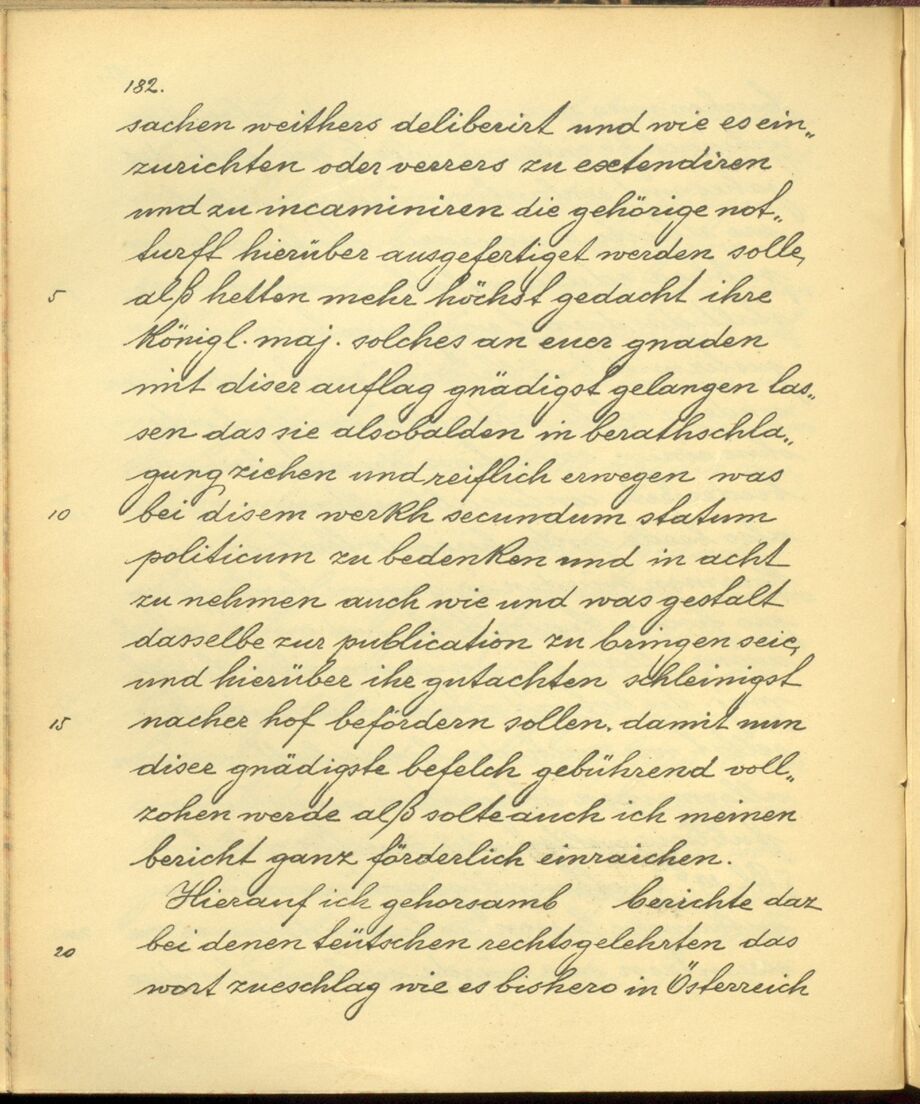 182.
sachen weithers deliberirt und wie es ein„
zurichten oder verrers zu extendiren
und zu incaminiren die gehörige not„
turff hierüber ausgefertiget werden solle,
5 alß hetten mehr höchst gedacht ihre
Königl. maj. solches an euer gnaden
mit diser auflag gnädigst gelangen las„
sen das sie alsobalden in berathschla„
gung ziehen und reiflich erwegen was
10 bei disem werkh secundum statum
politicum zu bedenken und in acht
zu nehmen auch wie und was gestalt
dasselbe zur publication zu bringen seie,
und hierüber ihr gutachten schleinigst
15 nacher hof befördern sollen. damit nun
diser gnädigste befelch gebührend voll„
zohen werde alß solte auch ich meinen
bericht ganz förderlich einraichen.
Hierauf ich gehorsamb berichte daz
20 bei denen teütschen rechtsgelehrten das
wort zueschlag wie es bishero in Österreich